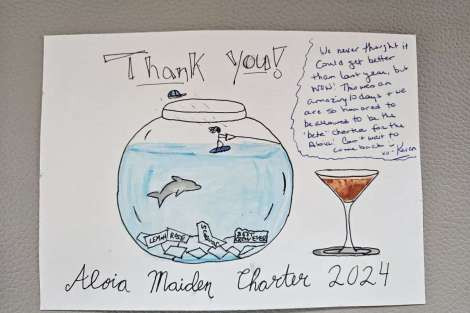 Thank You!
We never thought it
could get better
than last year, but
WOW! This was an
amazing 10 days & we
are so honored to
be allowed to be the
"beta" charter for the
Aloia! Can't wait to
come back
xo - Karen
Aloia Maiden Charter 2024